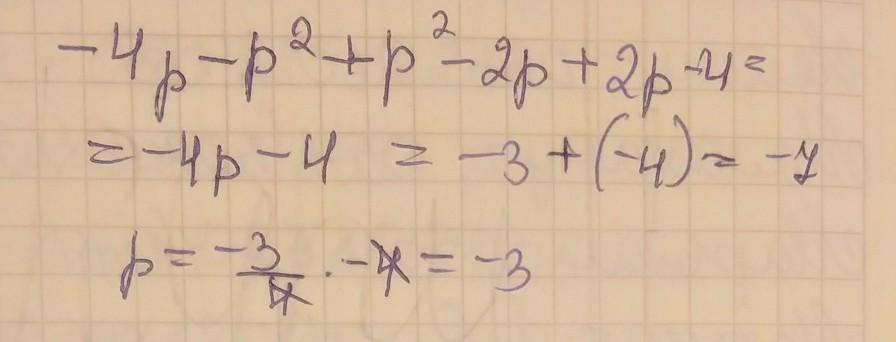 -4p-p²+p²-2p+2p-4=
=-4p-4 = -3+(-4)= -7
p = -3/4 · -4 = -3